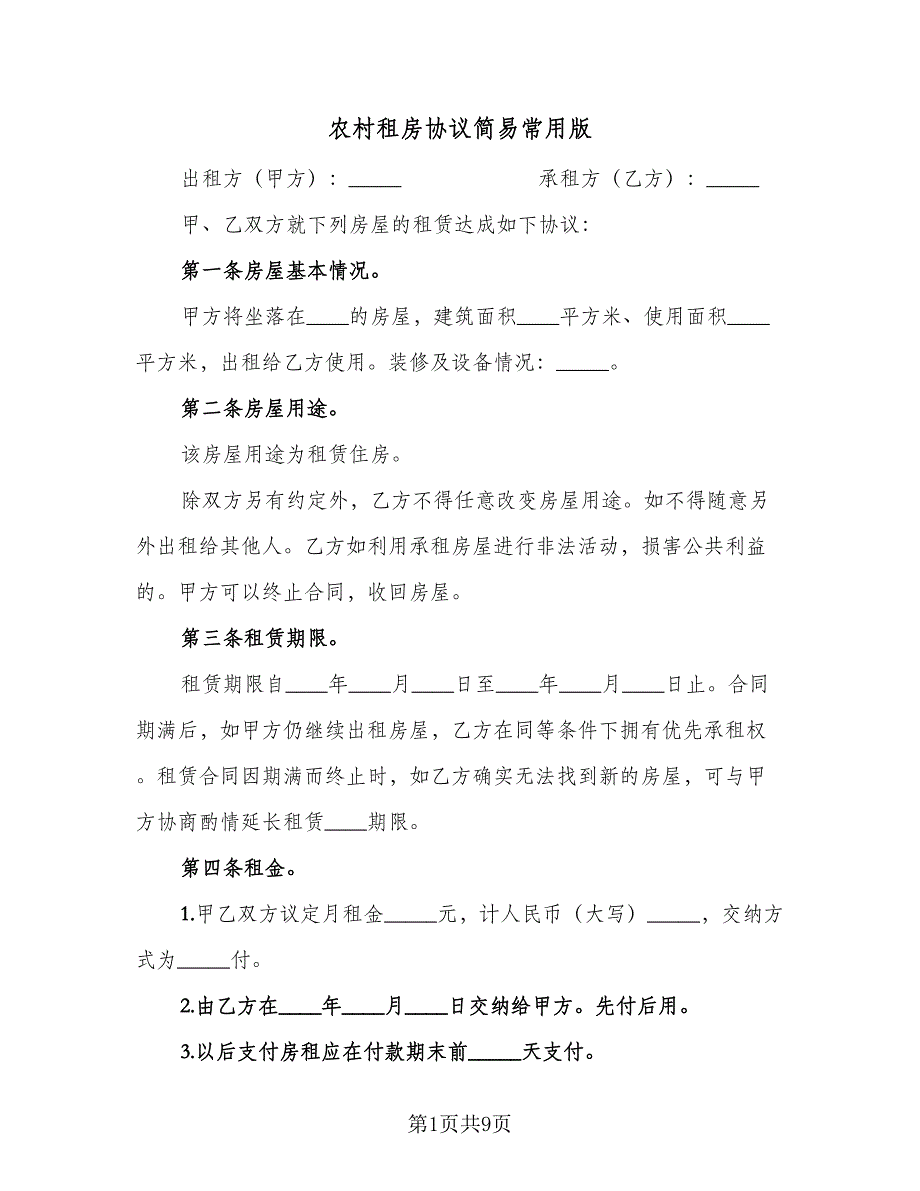 农村租房协议简易常用版
出租方（甲方）：_____ 承租方（乙方）：_____
甲、乙双方就下列房屋的租赁达成如下协议：
第一条房屋基本情况。
甲方将坐落在____的房屋，建筑面积____平方米、使用面积____
平方米，出租给乙方使用。装修及设备情况：_____。
第二条房屋用途。
该房屋用途为租赁住房。
除双方另有约定外，乙方不得任意改变房屋用途。如不得随意另
外出租给其他人。乙方如利用承租房屋进行非法活动，损害公共利益
的。甲方可以终止合同，收回房屋。
第三条租赁期限。
租赁期限自____年____月____日至____年____月____日止。合同
期满后，如甲方仍继续出租房屋，乙方在同等条件下拥有优先承租权
。租赁合同因期满而终止时，如乙方确实无法找到新的房屋，可与甲
方协商酌情延长租赁____期限。
第四条租金。
1.甲乙双方议定月租金_____元，计人民币（大写）_____，交纳方
式为_____付。
2.由乙方在____年____月____日交纳给甲方。先付后用。
3.以后支付房租应在付款期末前_____天支付。
第1页共9页